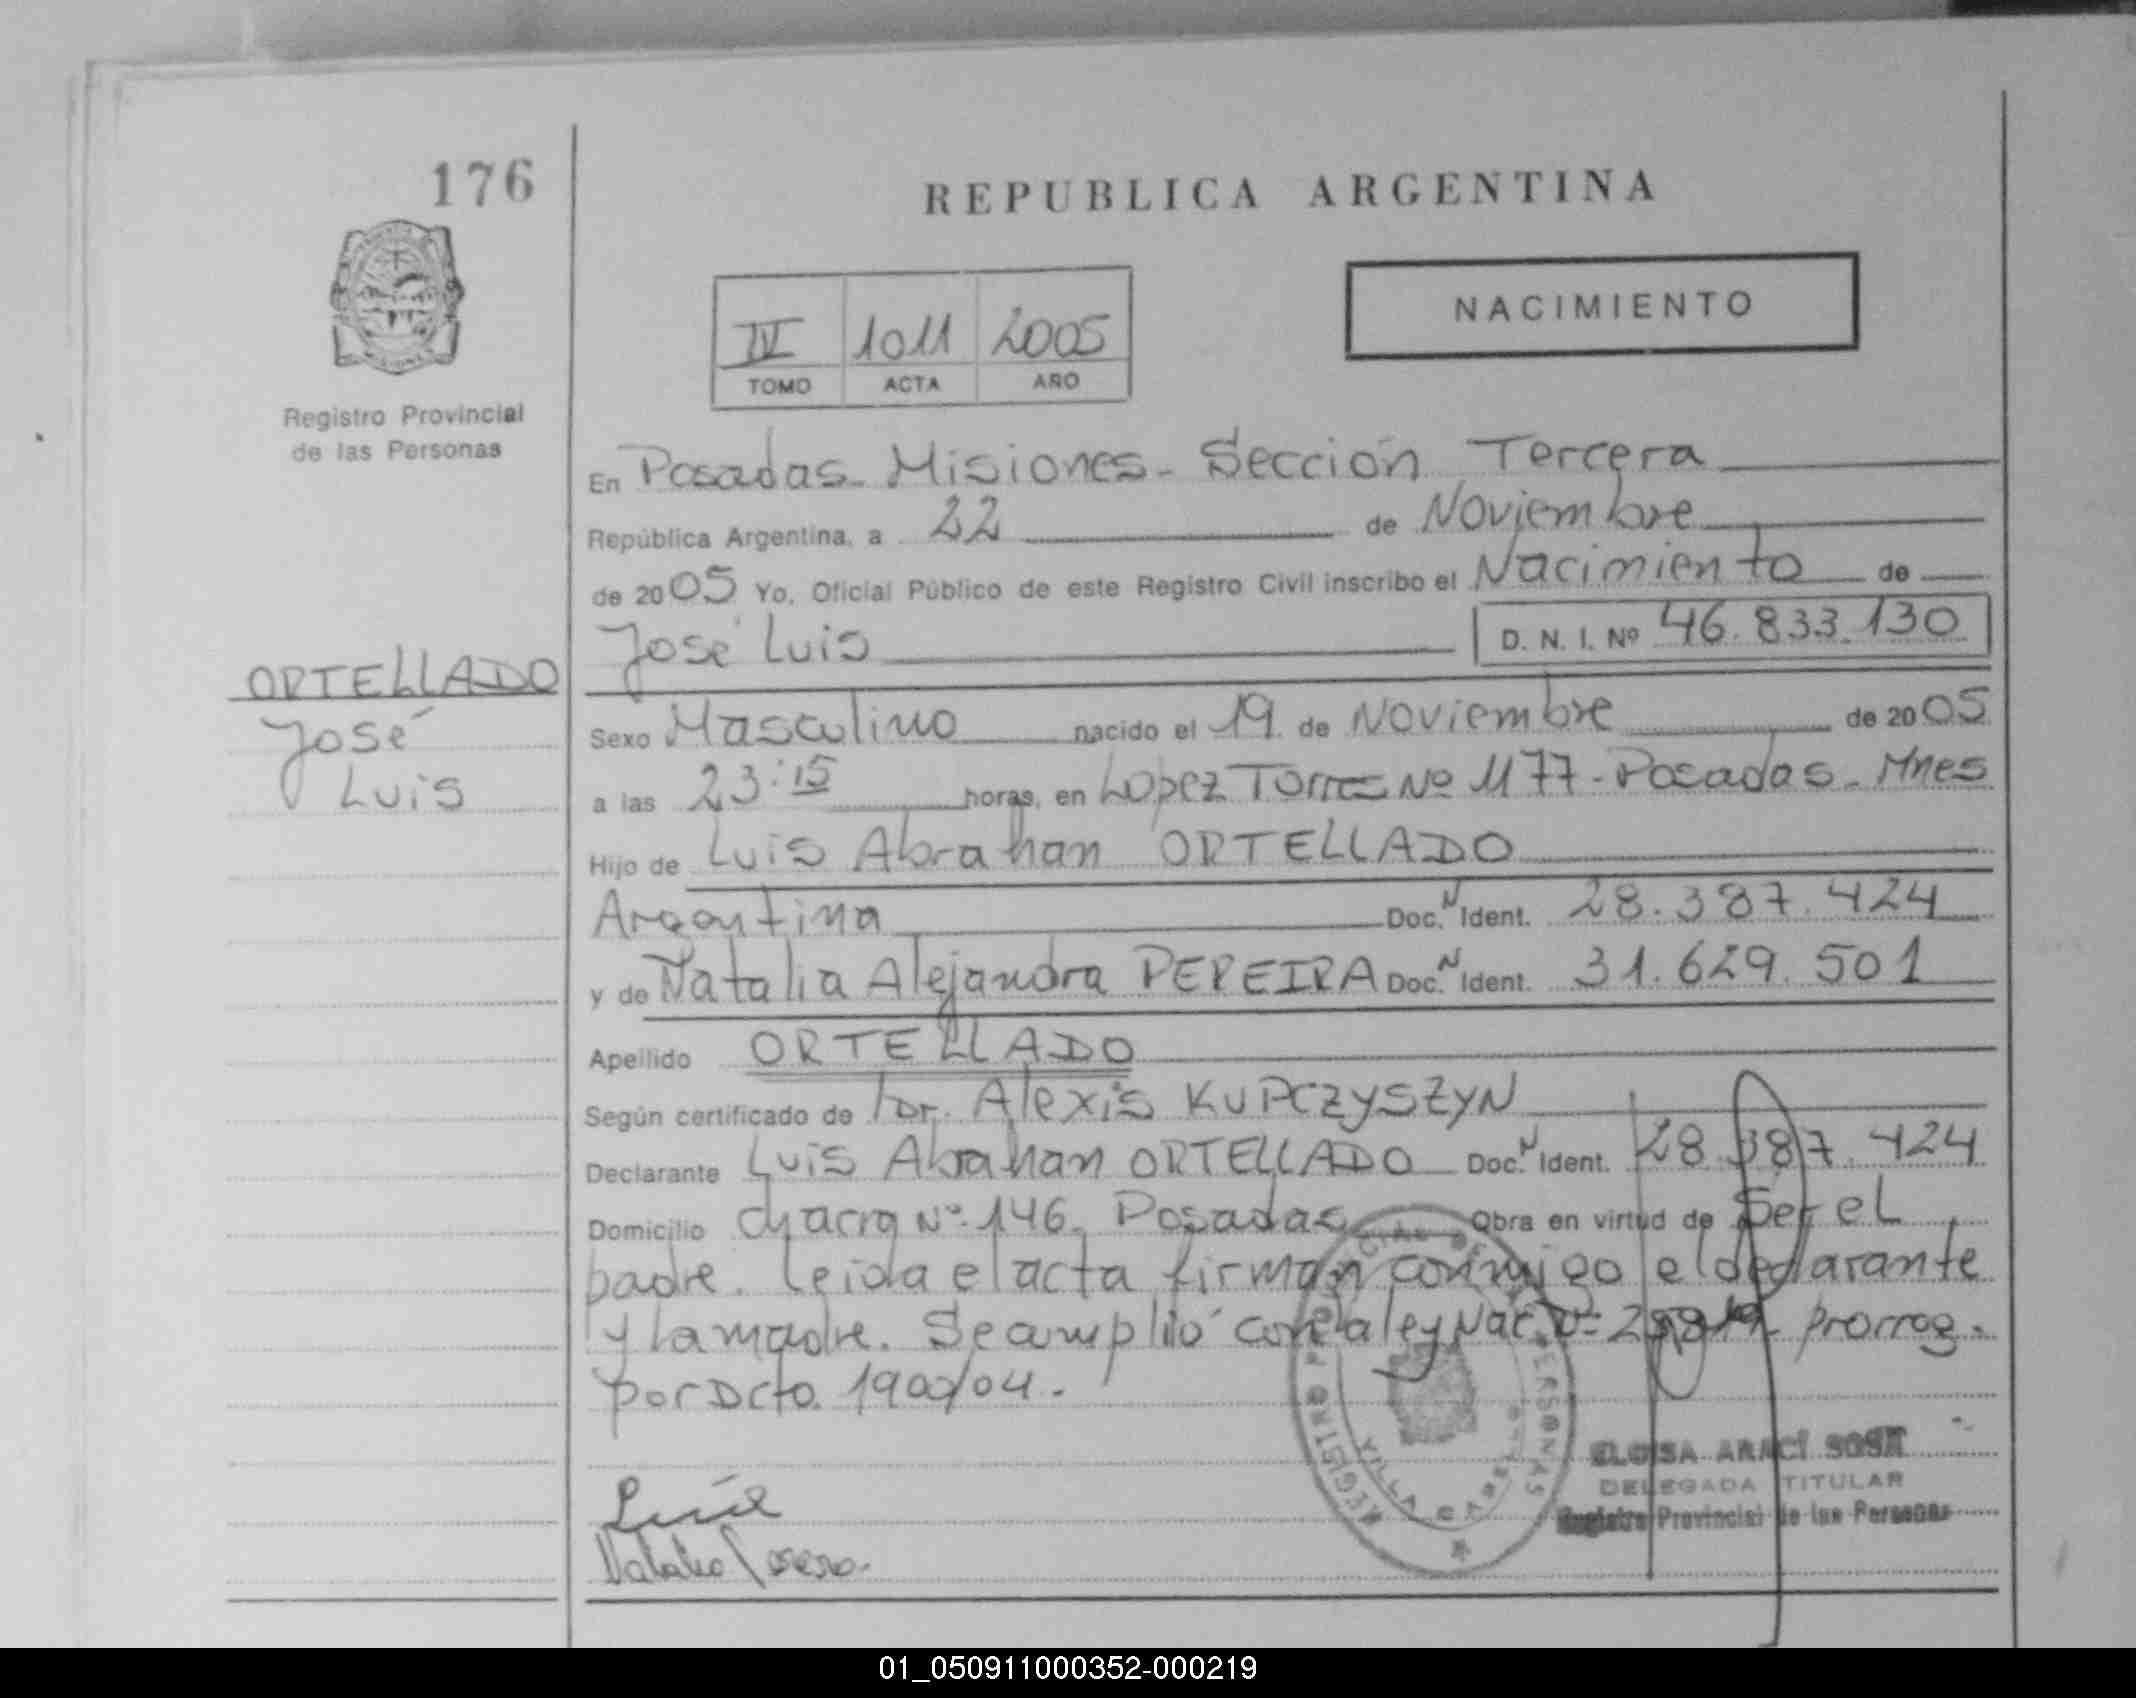 176
REPUBLICA ARGENTINA
NACIMIENTO
IV 1011 2005
TOMO ACTA AÑO
Registro Provincial
de las Personas
En Posadas - Misiones - Sección Tercera
República Argentina, a 22 de Noviembre
de 2005 Yo, Oficial Público de este Registro Civil inscribo el Nacimiento de
José Luis D. N. I. Nº 46.833.130
ORTELLADO
José
Luis
Sexo Masculino nacido el 19 de Noviembre de 2005
a las 23:15 horas, en Lopez Torres Nº 1177 - Posadas - Mnes
Hijo de Luis Abrahan ORTELLADO
Argentina Doc. N Ident. 28.387.424
y de Natalia Alejandra PEREIRA Doc. N Ident. 31.629.501
Apellido ORTELLADO
Según certificado de Dr. Alexis KUPCZYSZYN
Declarante Luis Abrahan ORTELLADO Doc. N Ident. 28.387.424
Domicilio chacra Nº 146. Posadas Obra en virtud de Ser el
padre. Leida el acta firman conmigo el declarante
y la madre. Se amplió con la ley Nac. Nº prorrog.
por Dcto. 1900/04.
REGISTRO PROVINCIAL DE LAS PERSONAS
VILLA CABELLO
ELOISA ARACI SOSA
DELEGADA TITULAR
Registro Provincial de las Personas
Luis
Natalia
01_050911000352-000219